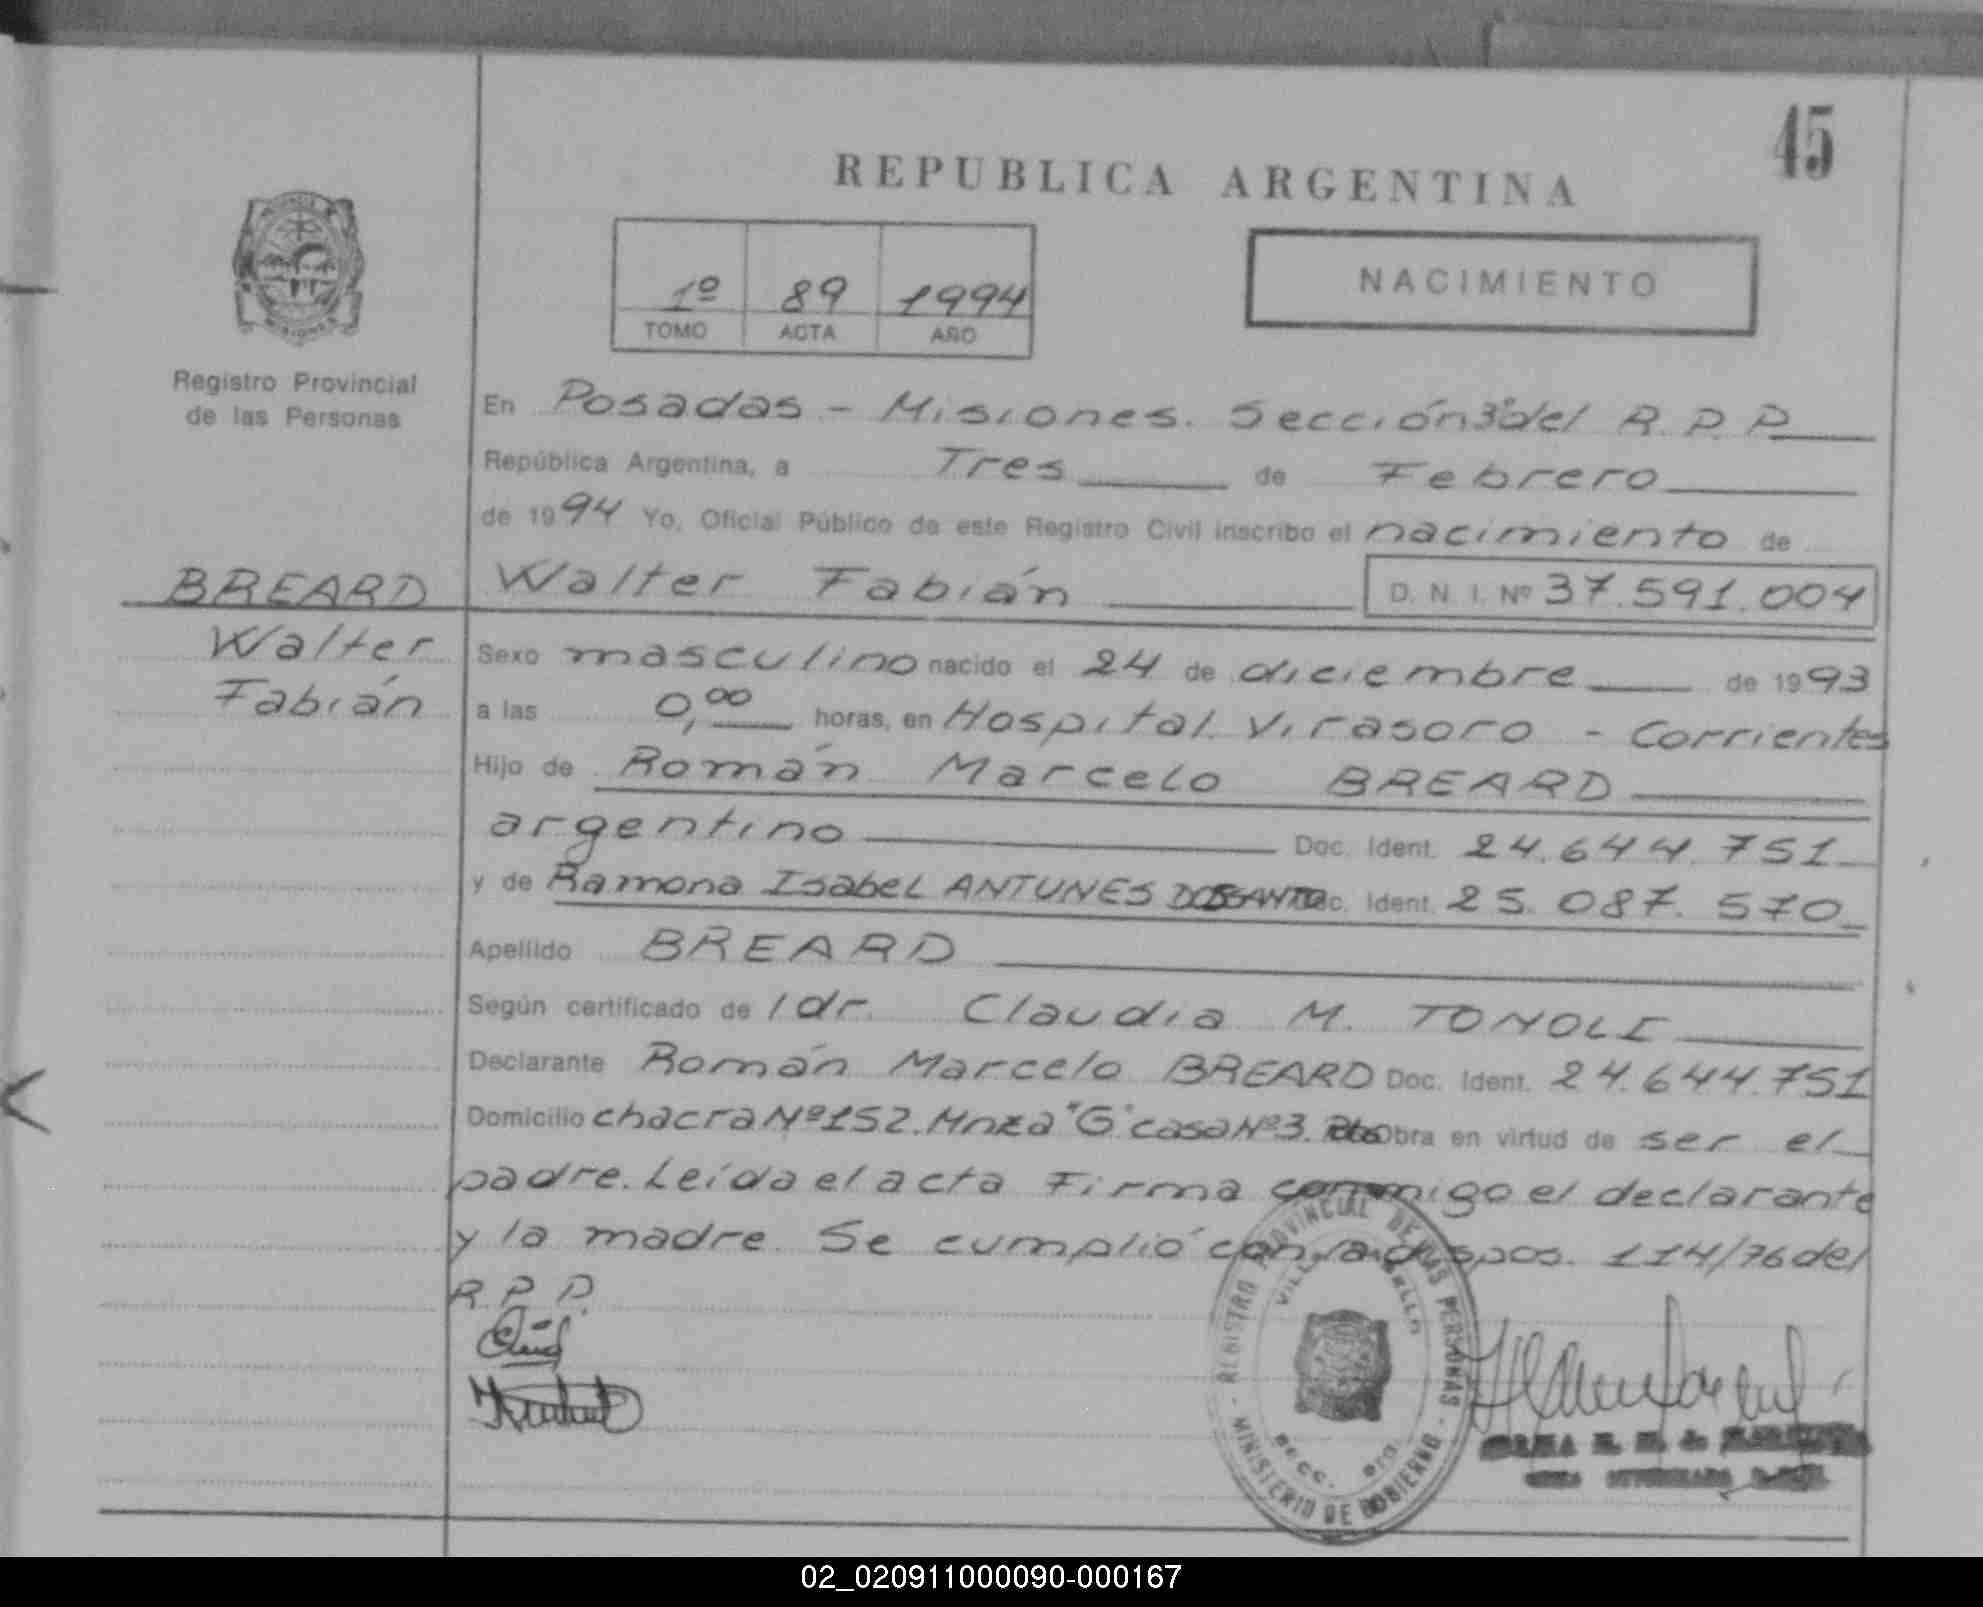 45
REPUBLICA ARGENTINA
1º 89 1994
TOMO ACTA AÑO
NACIMIENTO
MISIONES
Registro Provincial
de las Personas
En Posadas - Misiones. Sección 3º del R.P.P.
República Argentina, a Tres de Febrero
de 1994 Yo, Oficial Público de este Registro Civil inscribo el nacimiento de
BREARD Walter Fabián D. N. I. Nº 37.591.004
Walter
Fabián
Sexo masculino nacido el 24 de diciembre de 1993
a las 0,00 horas, en Hospital Virasoro - Corrientes
Hijo de Román Marcelo BREARD
argentino Doc. Ident. 24.644.751
y de Ramona Isabel ANTUNES DOSSANTO Doc. Ident. 25.087.570
Apellido BREARD
Según certificado de l dr. Claudia M. TONOLI
Declarante Román Marcelo BREARD Doc. Ident. 24.644.751
Domicilio chacra Nº 152. Mnza "G" casa Nº 3. Obra en virtud de ser el
padre. Leída el acta Firma conmigo el declarante
y la madre. Se cumplió con la dispos. 114/76 del
R.P.P.
REGISTRO PROVINCIAL DE LAS PERSONAS
- MINISTERIO DE GOBIERNO -
VILLA
SECC.
02_020911000090-000167